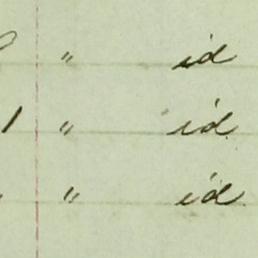 " id
1 " id
" " id